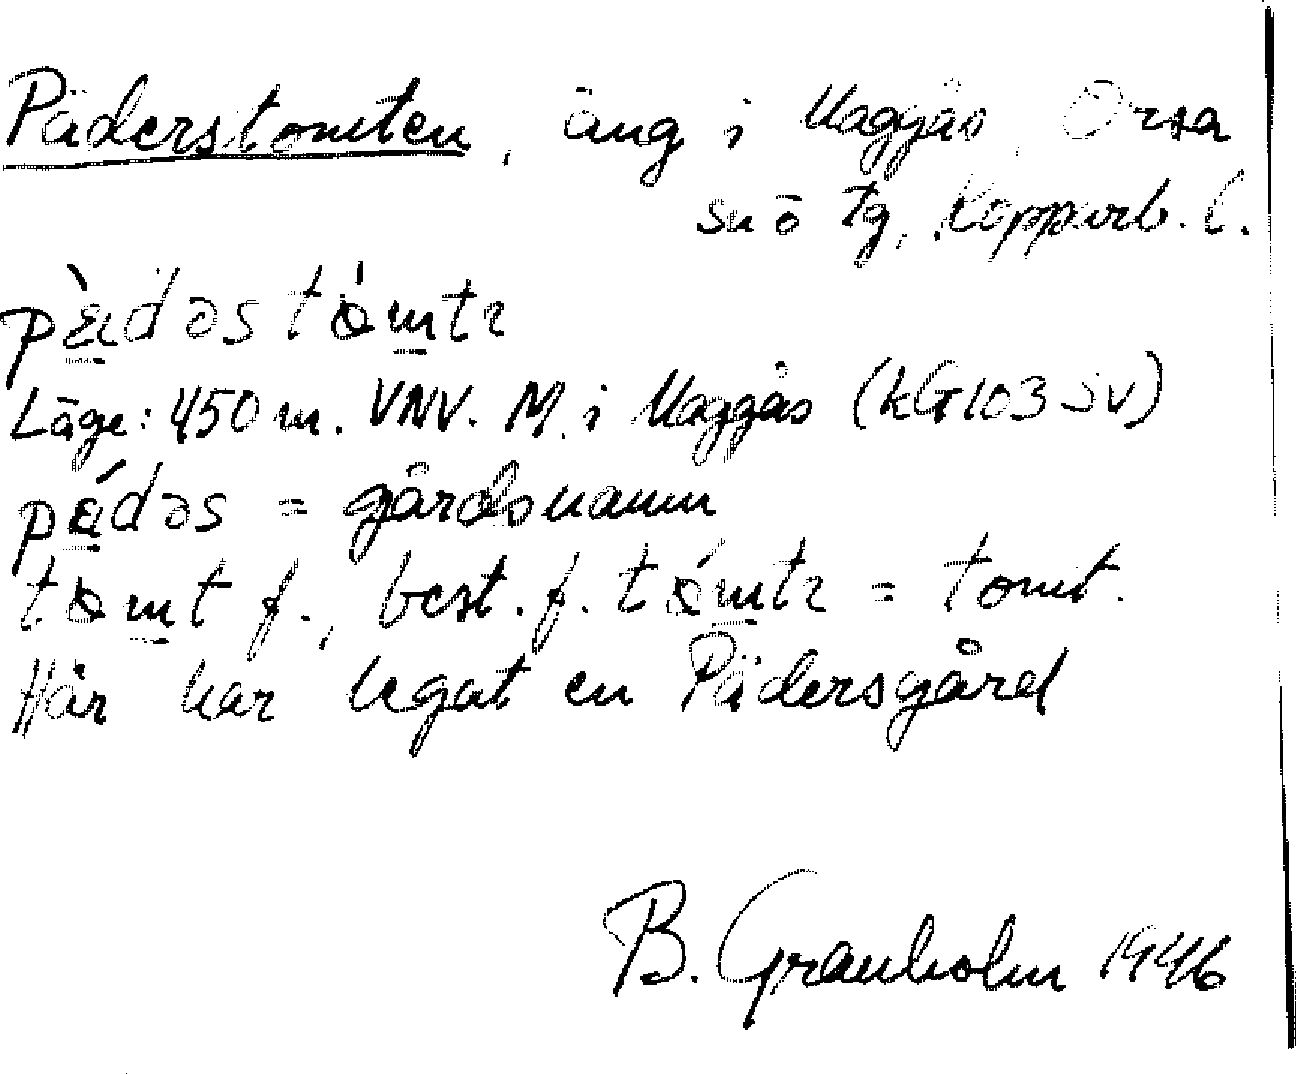 Päderstomten, äng i Maggås, Orsa
sn ö tg, Kopparb. l.
pɛ̀dəs tómtı
Läge: 450 m. VNV. M. i Maggås (kG103 SV)
pɛ́dəs = gårdsnamn
tomt f., best. f. tómtı = tomt.
Här har legat en Pädersgård
B. Granholm 1946